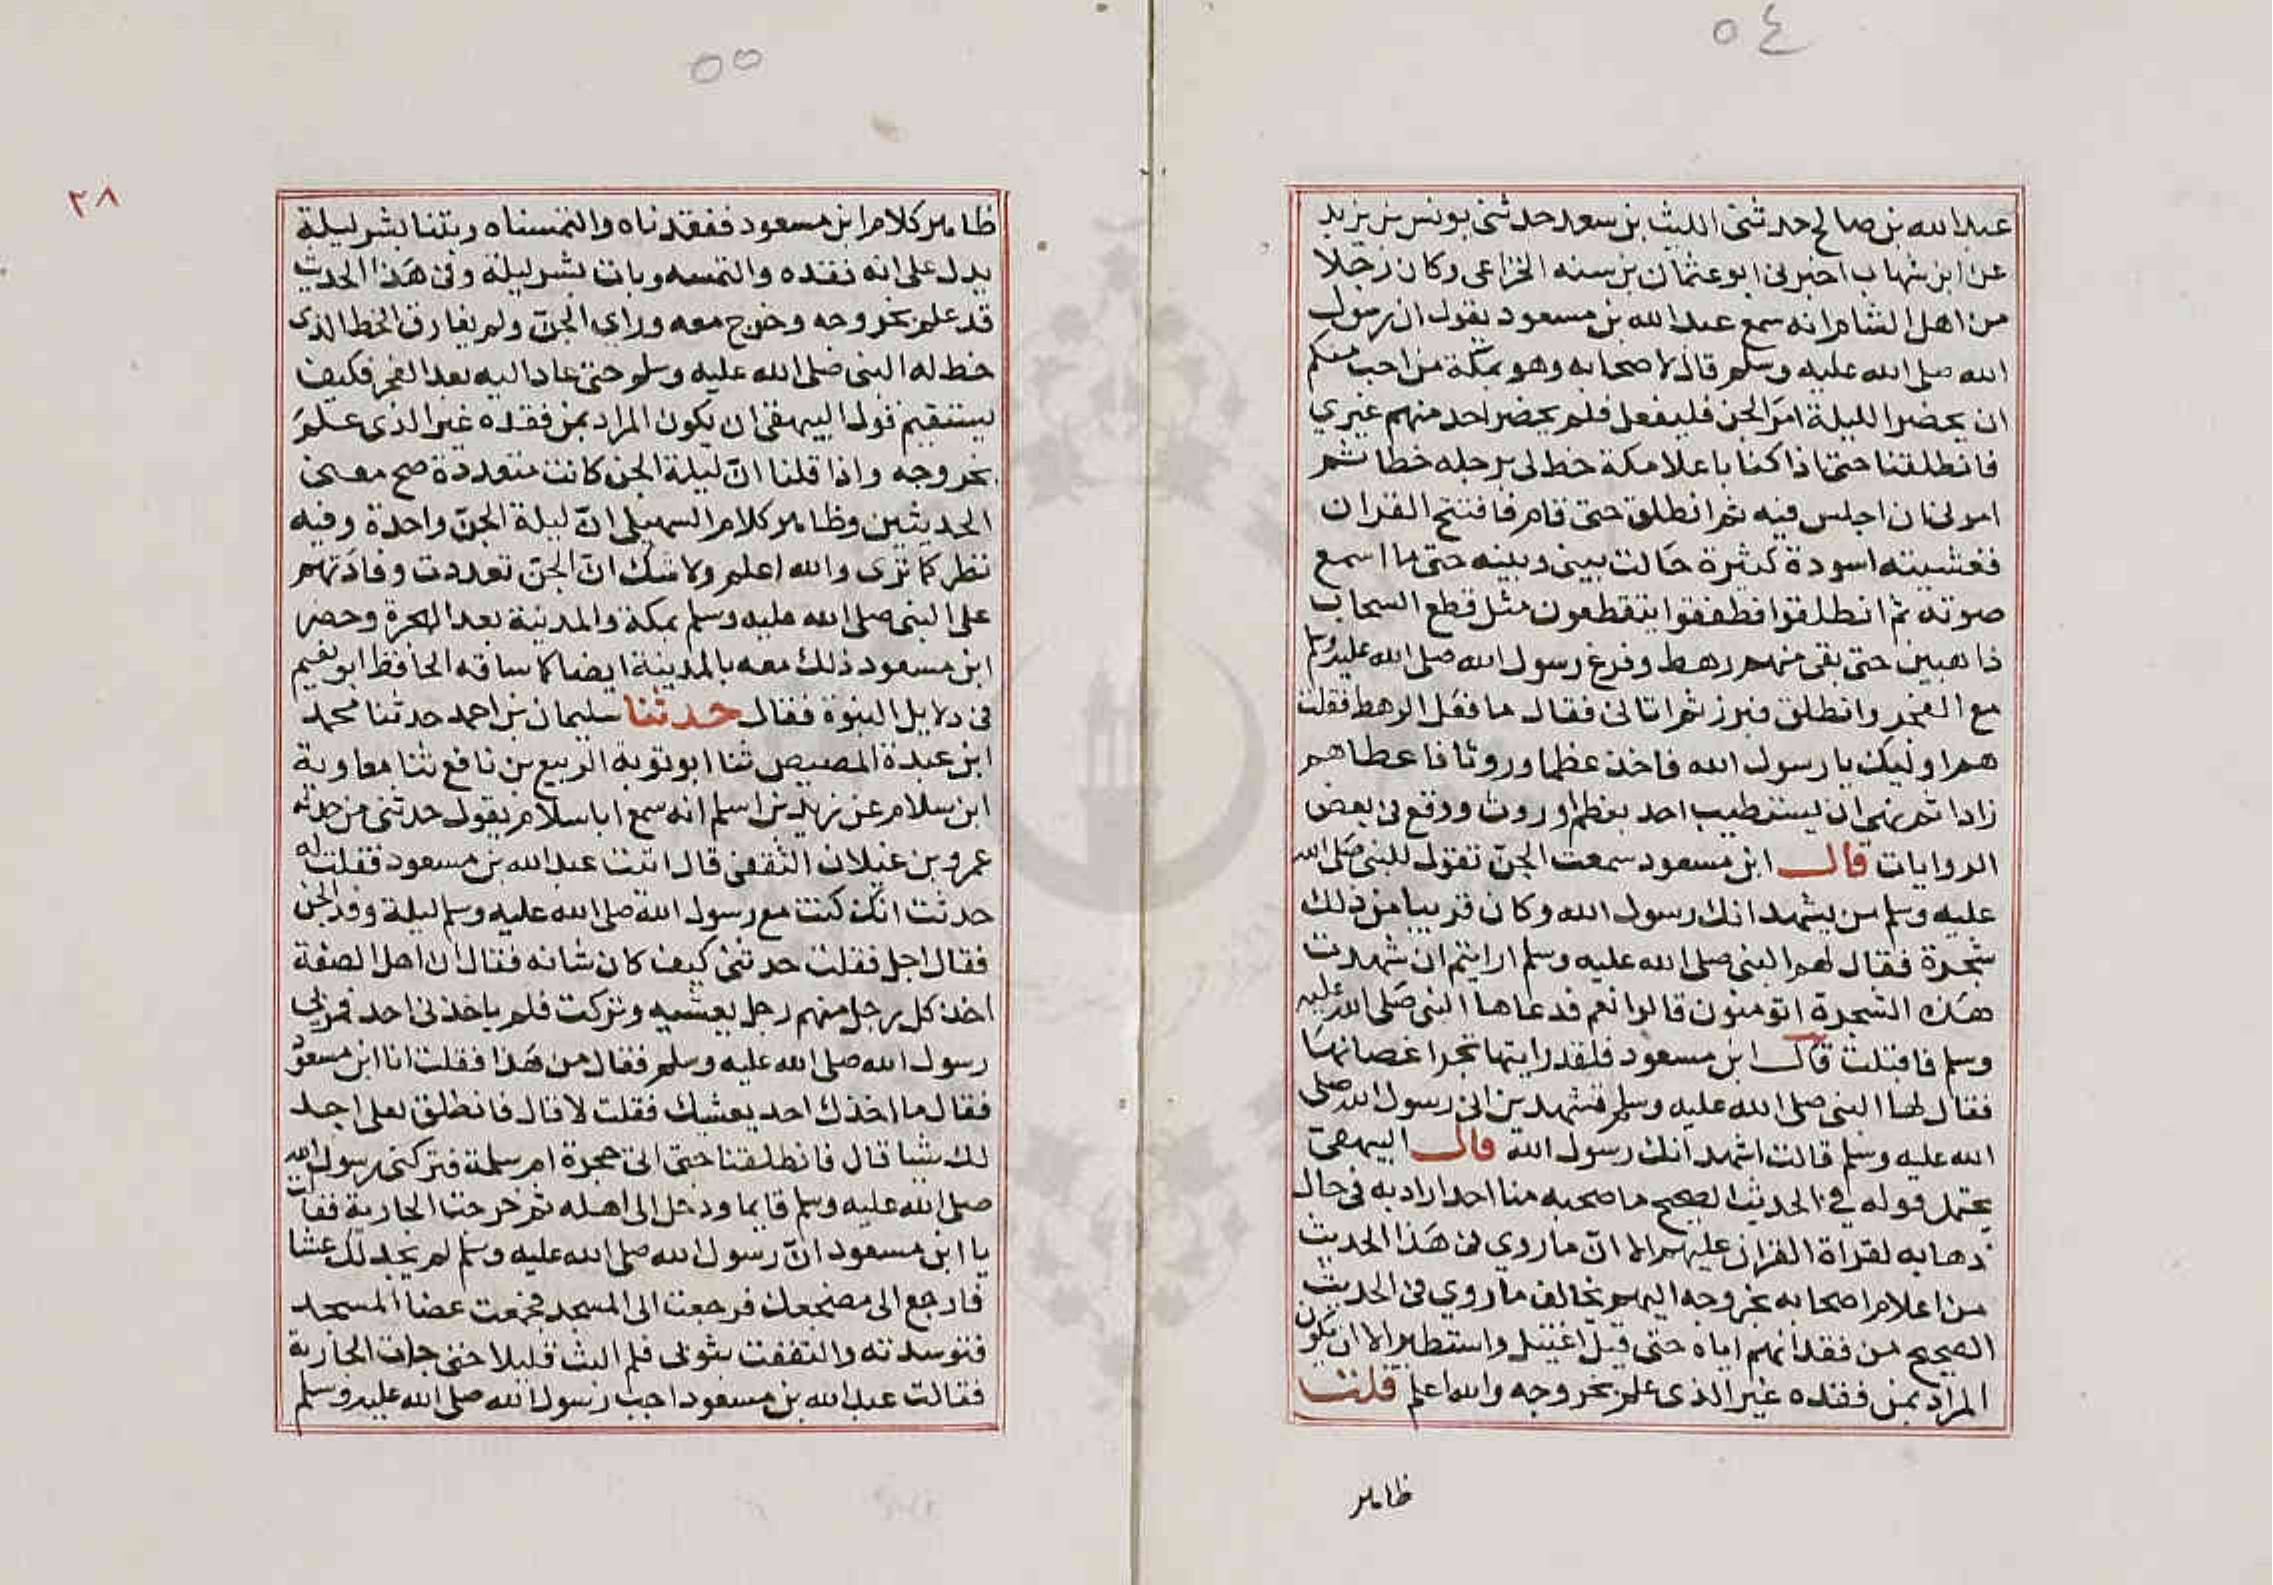 ٥٤
عبد الله بن صالح حدثني الليث بن سعد حدثني يونس بن يزيد
عن ابن شهاب اخبرني ابو عثمان بن سنه الخزاعي وكان رجلا
من اهل الشام انه سمع عبد الله بن مسعود يقول ان رسول
الله صلى الله عليه وسلم قال لاصحابه وهو بمكة من احب منكم
ان يحضر الليلة امر الجن فليفعل فلم يحضر احد منهم غيري
فانطلقنا حتى اذا كنا باعلا مكة خط لي برجله خطا ثم
امرني ان اجلس فيه ثم انطلق حتى قام فافتتح القران
فغشيته اسودة كثيرة حالت بيني وبينه حتى ما اسمع
صوته ثم انطلقوا فطفقوا يتقطعون مثل قطع السحاب
ذاهبين حتى بقي منهم رهط وفرغ رسول الله صلى الله عليه وسلم
مع الفجر وانطلق فبرز ثم اتاني فقال ما فعل الرهط فقلت
هم اوليك يا رسول الله فاخذ عظما وروثا فاعطاهم
زادا ثم نهى ان يستطيب احد بعظم او روث ووقع في بعض
الروايات قال ابن مسعود سمعت الجن تقول للنبي صلى الله
عليه وسلم من يشهد انك رسول الله وكان قريبا من ذلك
شجرة فقال لهم النبي صلى الله عليه وسلم ارايتم ان شهدت
هذه الشجرة اتومنون قالوا نعم فدعاها النبي صلى الله عليه
وسلم فاقبلت قال ابن مسعود فلقد رايتها تجر اغصانها
فقال لها النبي صلى الله عليه وسلم تشهدين اني رسول الله صلى
الله عليه وسلم قالت اشهد انك رسول الله قال البيهقي
يحتمل قوله في الحديث الصحيح ما صحبه منا احد اراد به في حال
ذهابه لقراة القران عليهم الا ان ما روي في هذا الحديث
من اعلام اصحابه بخروجه اليهم يخالف ما روي في الحديث
الصحيح من فقدانهم اياه حتى قيل اغتيل واستطير الا ان يكون
المراد بمن فقده غير الذي علم بخروجه والله اعلم قلت
ظاهر
٥٥
٢٨
ظاهر كلام ابن مسعود ففقدناه والتمسناه وبتنا بشر ليلة
يدل على انه فقده والتمسه وبات بشر ليلة وفي هذا الحديث
قد علم بخروجه وخرج معه وراي الجن ولم يفارق الخط الذي
خط له النبي صلى الله عليه وسلم حتى عاد اليه بعد الفجر فكيف
يستقيم قول البيهقي ان يكون المراد بمن فقده غير الذي علم
بخروجه واذا قلنا ان ليلة الجن كانت متعددة صح معنى
الحديثين وظاهر كلام السهيلي ان ليلة الجن واحدة وفيه
نظر كما ترى والله اعلم ولا شك ان الجن تعددت وفادتهم
على النبي صلى الله عليه وسلم بمكة والمدينة بعد الهجرة وحضر
ابن مسعود ذلك معه بالمدينة ايضا كما ساقه الحافظ ابو نعيم
في دلايل النبوة فقال حدثنا سليمان بن احمد حدثنا محمد
ابن عبدة المصيصي ثنا ابو توبة الربيع بن نافع ثنا معاوية
ابن سلام عن زيد بن اسلم انه سمع ابا سلام يقول حدثني من حدثه
عمرو بن غيلان الثقفي قال اتيت عبد الله بن مسعود فقلت له
حدثت انك كنت مع رسول الله صلى الله عليه وسلم ليلة وفد الجن
فقال اجل فقلت حدثني كيف كان شانه فقال ان اهل الصفة
اخذ كل رجل منهم رجل يعشيه وتركت فلم ياخذني احد فمر بي
رسول الله صلى الله عليه وسلم فقال من هذا فقلت انا ابن مسعود
فقال ما اخذك احد يعشيك فقلت لا قال فانطلق لعلي اجد
لك شيا قال فانطلقنا حتى اتى حجرة ام سلمة فتركني رسول الله
صلى الله عليه وسلم قايما ودخل الى اهله ثم خرجت الجارية فقالت
يا ابن مسعود ان رسول الله صلى الله عليه وسلم لم يجد لك عشا
فارجع الى مضجعك فرجعت الى المسجد فجمعت حصا المسجد
فتوسدته والتففت بثوبي فلم البث قليلا حتى جات الجارية
فقالت عبد الله بن مسعود اجب رسول الله صلى الله عليه وسلم